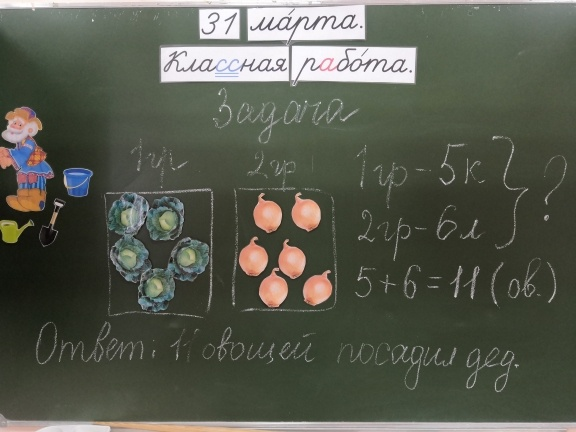 31 ма́рта.
Классная рабо́та.
Задача
1гр 2гр
1гр-5к
2гр-6л
?
5+6=11(ов.)
Ответ: 11 овощей посадил дед.